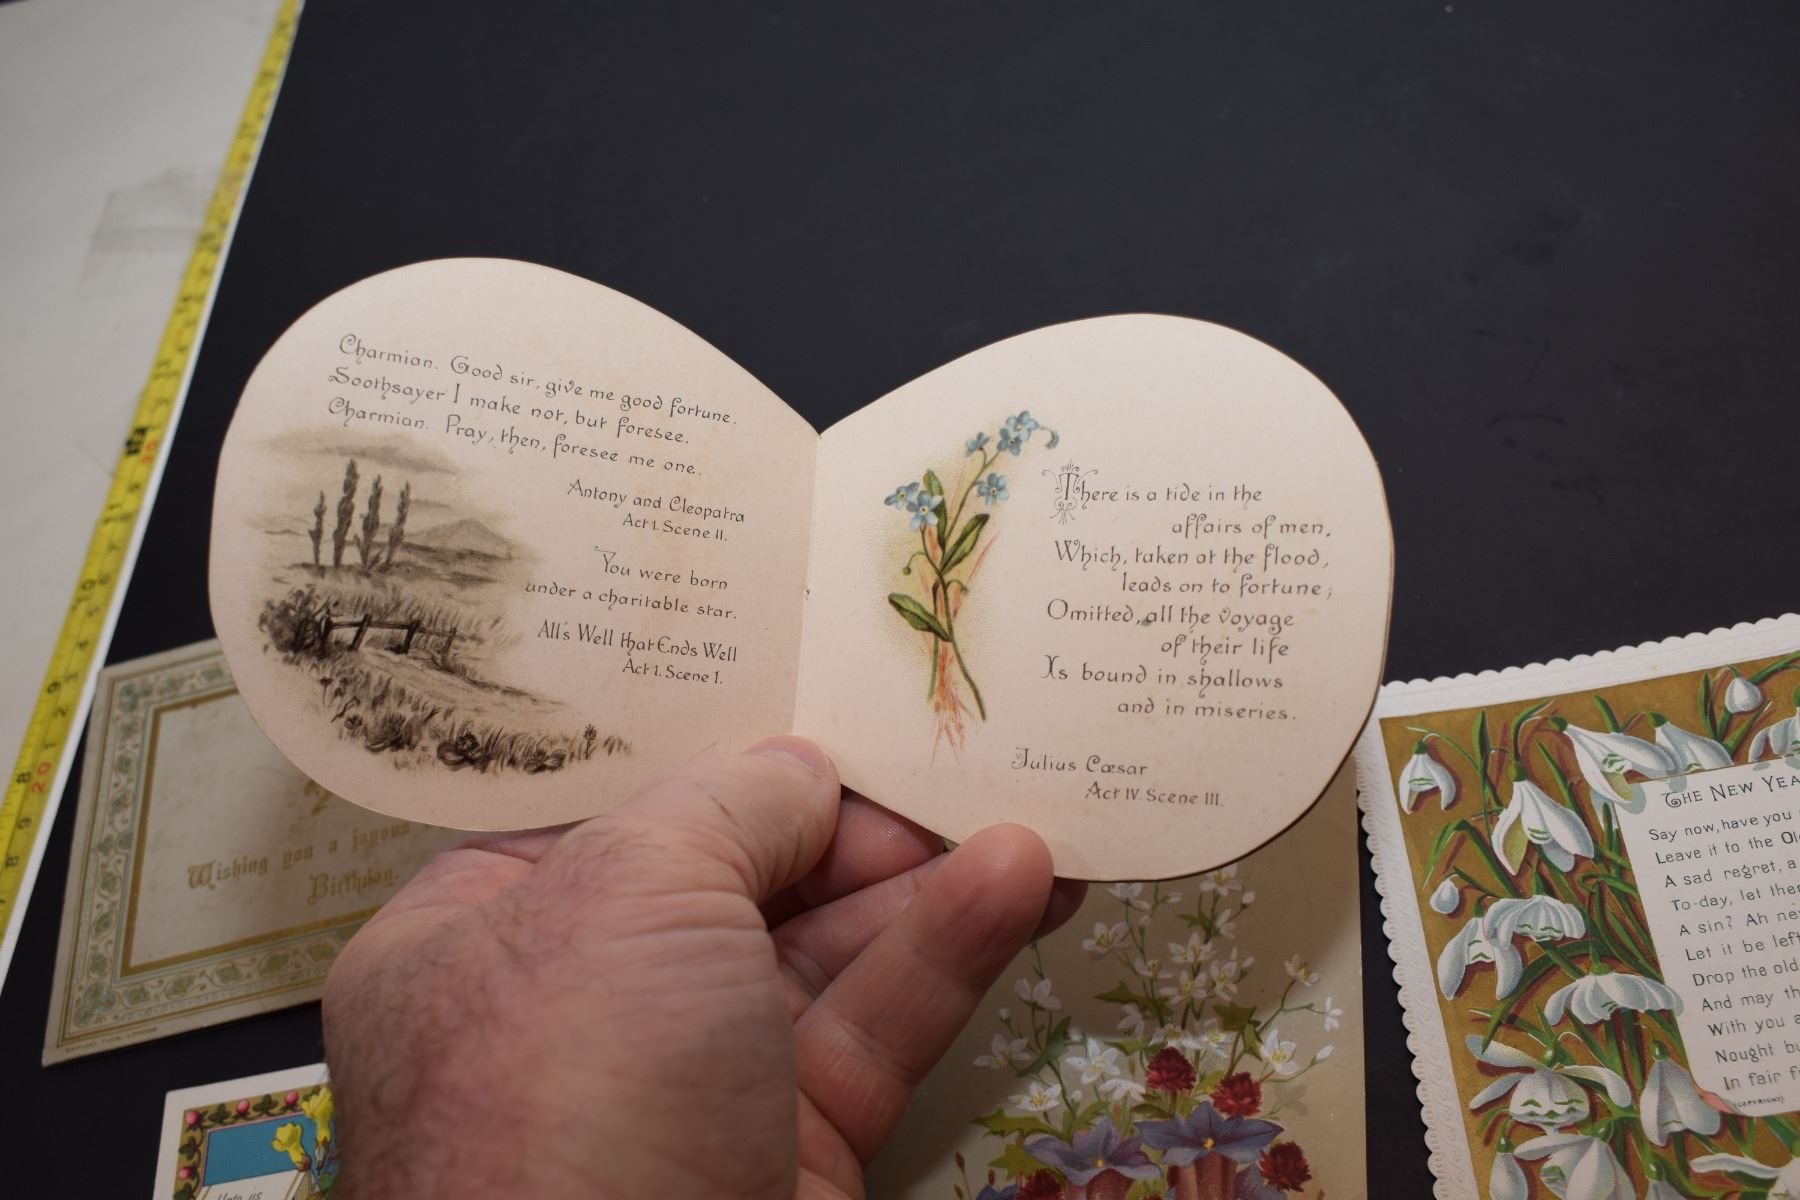 Charmian. Good sir, give me good fortune.
Soothsayer I make not, but foresee.
Charmian. Pray, then, foresee me one.
Antony and Cleopatra
Act I. Scene II.
You were born
under a charitable star.
All's Well that Ends Well
Act I. Scene I.
There is a tide in the
affairs of men,
Which, taken at the flood,
leads on to fortune;
Omitted, all the voyage
of their life
Is bound in shallows
and in miseries.
Julius Cæsar
Act IV. Scene III.
Wishing you a joyous
Birthday.
RAPHAEL TUCK, LONDON
Unto us
THE NEW YEA
Say now, have you
Leave it to the Old
A sad regret, a
To-day, let them
A sin? Ah
Let it be left
Drop the old
And may th
With you a
Nought bu
In fair f
(COPYRIGHT)